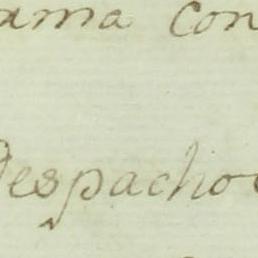 ama con
Despacho